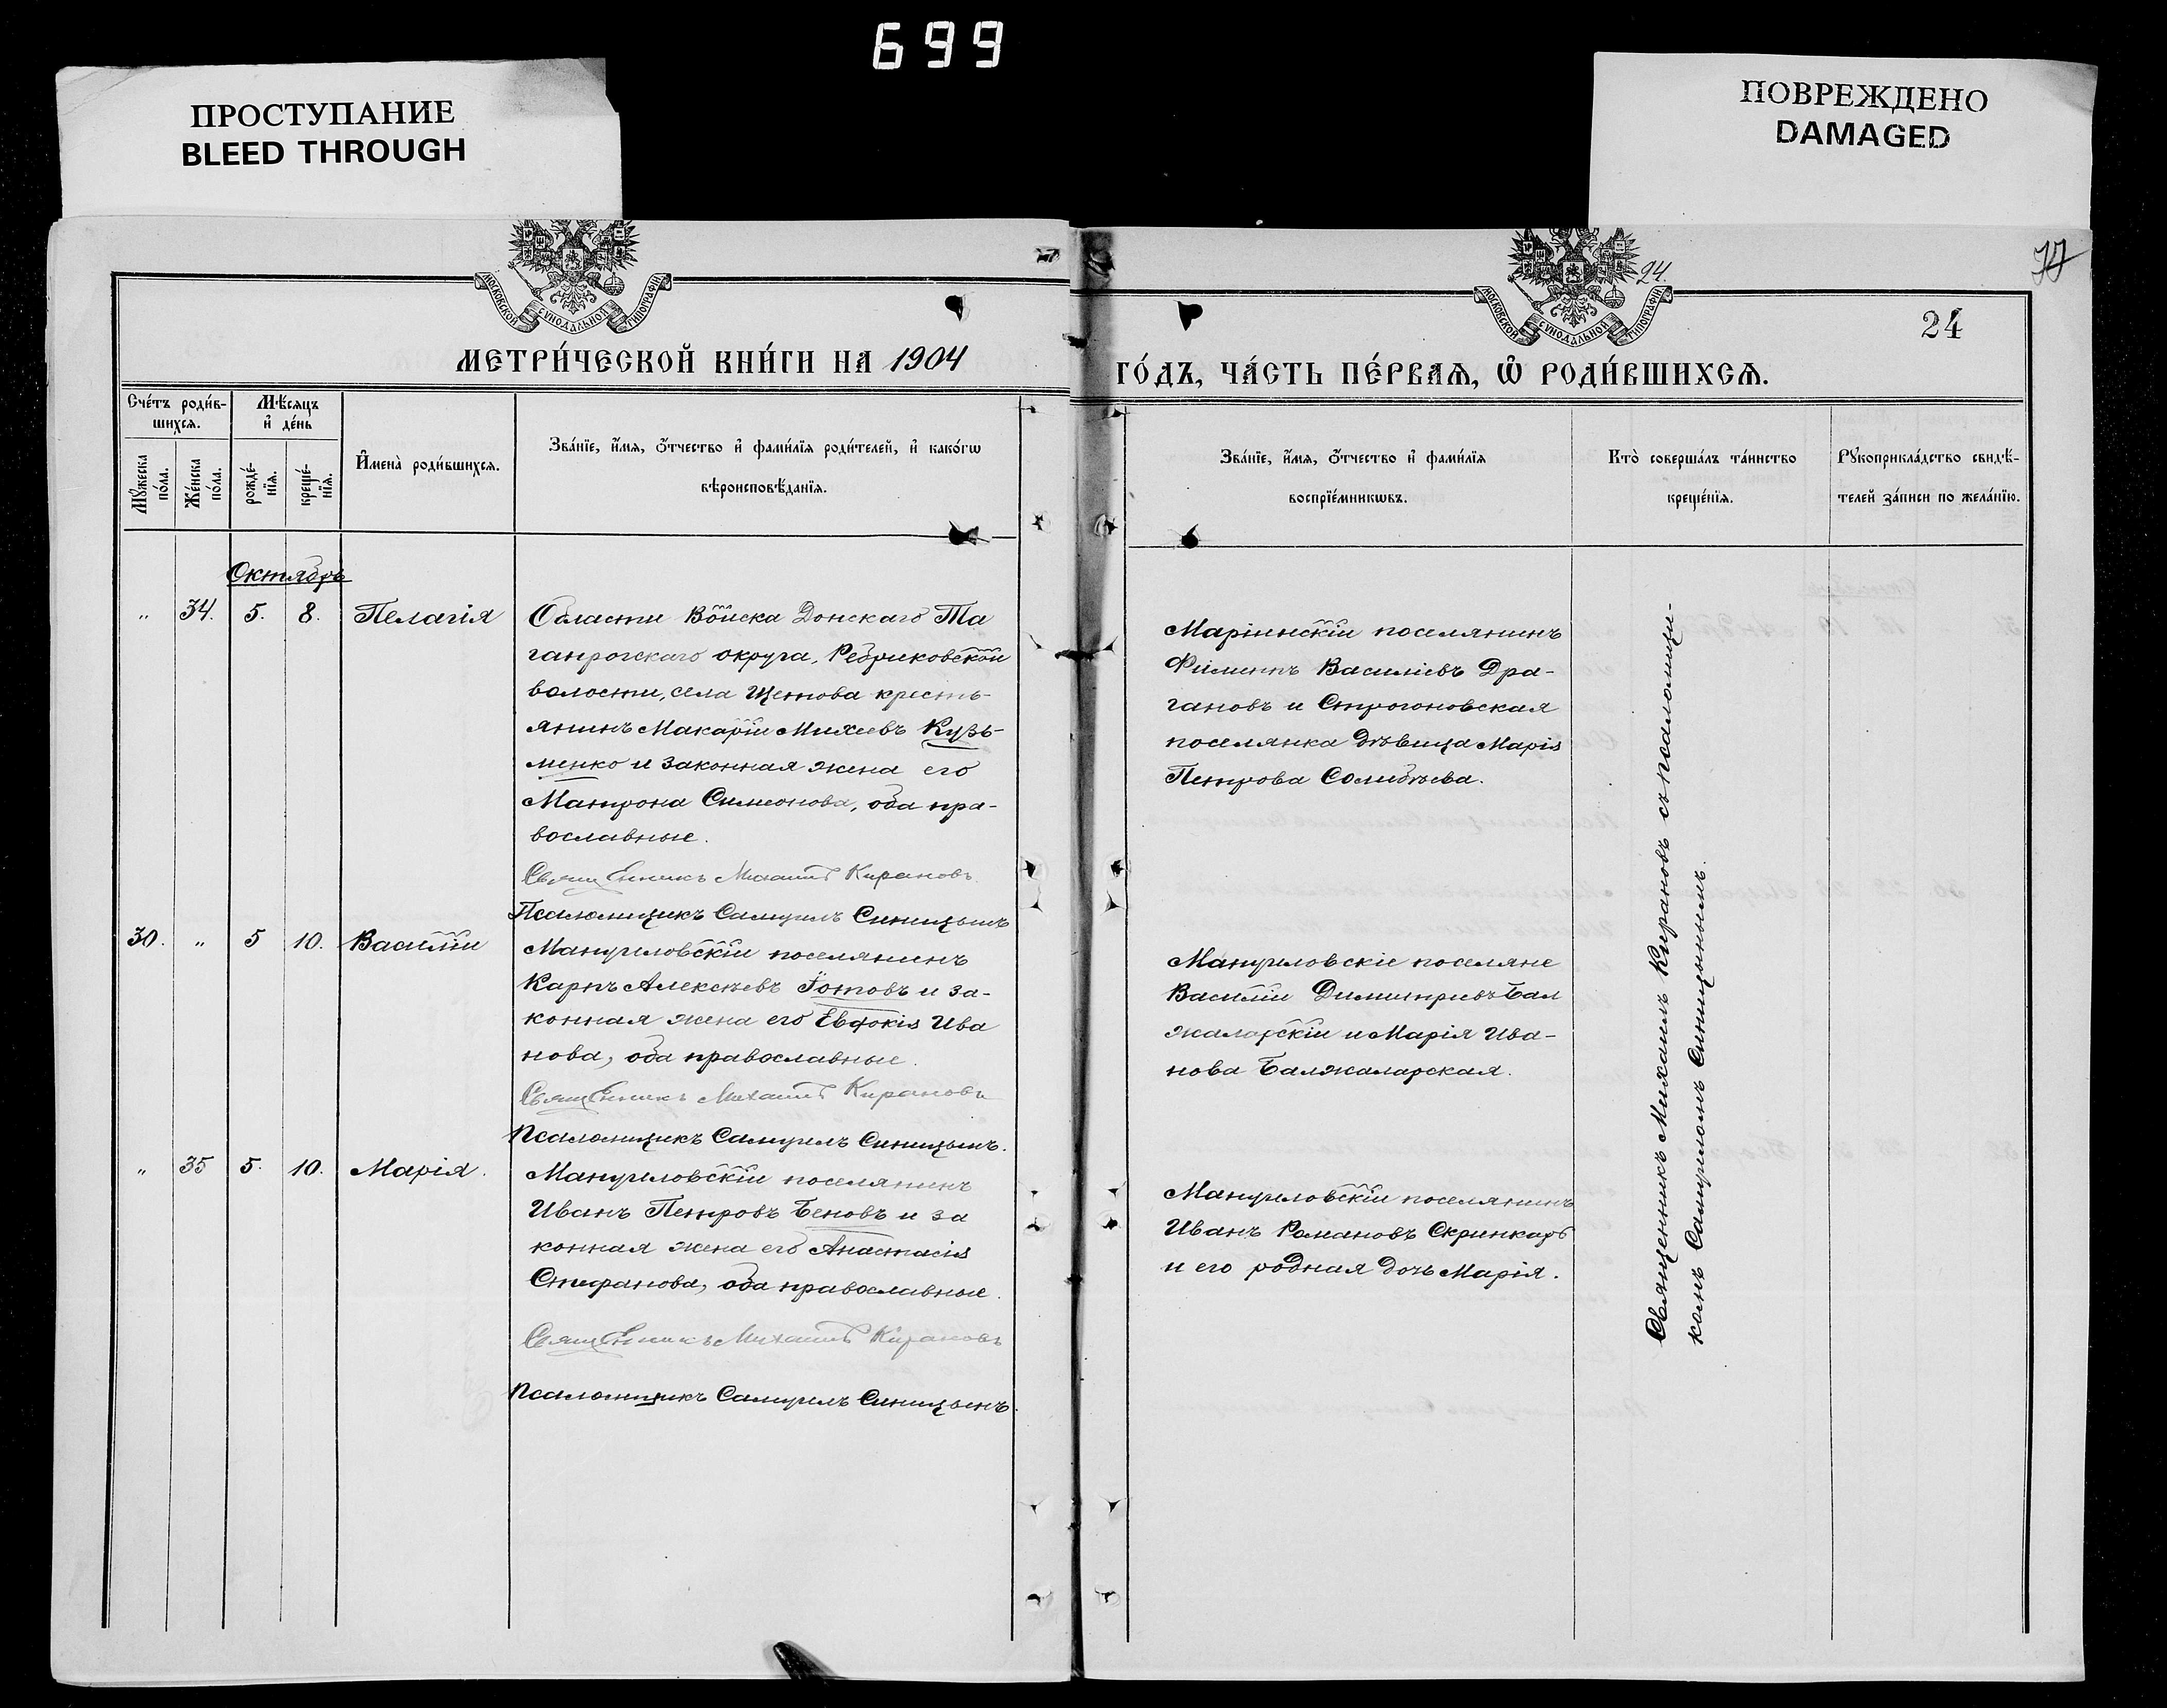 699
ПРОСТУПАНИЕ
BLEED THROUGH
ПОВРЕЖДЕНО
DAMAGED
МОСКОВСКОЙ СѴНОДАЛЬНОЙ ТИПОГРАФІИ
МОСКОВСКОЙ СѴНОДАЛЬНОЙ ТИПОГРАФІИ
24.
24
МЕТРИ́ЧЕСКОЙ КНИ́ГИ НА 1904
ГО́ДЪ, ЧА́СТЬ ПЕ́РВАѦ, Ѡ РОДИ́ВШИХСѦ.
Сче́тъ роди́в-
шихсѧ.
Мѣ́сѧцъ
и҆ де́нь
Мꙋжеска
по́ла.
Же́нска
по́ла.
рожде́-
нїѧ.
креще́-
нїѧ.
И҆мена̀ роди́вшихсѧ.
Зва́нїе, и҆́мѧ, ѻ҆́тчество и҆ фами́лїѧ роди́телей, и҆ како́гѡ
вѣроисповѣ́данїѧ.
Зва́нїе, и҆́мѧ, ѻ҆́тчество и҆ фами́лїѧ
воспрїе́мникѡвъ.
Кто̀ соверша́лъ та́инство
креще́нїѧ.
Рꙋкоприкла́дство свидѣ́-
телей за́писи по жела́нїю.
Октябрь
„ 34. 5. 8. Пелагія
Области Войска Донскаго Та
ганрогскаго округа, Ребриковской
волости, села Щетова кресть-
янинъ Макарій Михеевъ Кузь-
менко и законная жена его
Матрона Симеонова, оба пра-
вославные.
Священникъ Михаилъ Кирановъ
Псаломщикъ Самуилъ Синицынъ
Маріинскій поселянинъ
Филиппъ Василіевъ Дра-
гановъ и Строгоновская
поселянка дѣвица Марія
Петрова
30. „ 5 10. Василій
Мануиловскій поселянинъ
Карпъ Алексѣевъ и за-
конная жена его Евдокія Ива
нова, оба православные.
Священникъ Михаилъ Кирановъ
Псаломщикъ Самуилъ Синицынъ.
Мануиловскіе поселяне
Василій Димитріевъ Бал
жаларскій и Марія Ива-
нова Балжаларская.
„ 35 5. 10. Марія.
Мануиловскій поселянинъ
Иванъ Петровъ Беновъ и за
конная жена его Анастасія
Стефанова, оба православные.
Священникъ Михаилъ Кирановъ
Псаломщикъ Самуилъ Синицынъ.
Мануиловскій поселянинъ
Иванъ Романовъ Скринкарь
и его родная дочь Марія.
Священникъ Михаилъ Кирановъ съ псаломщи-
комъ Самуиломъ Синицынымъ.